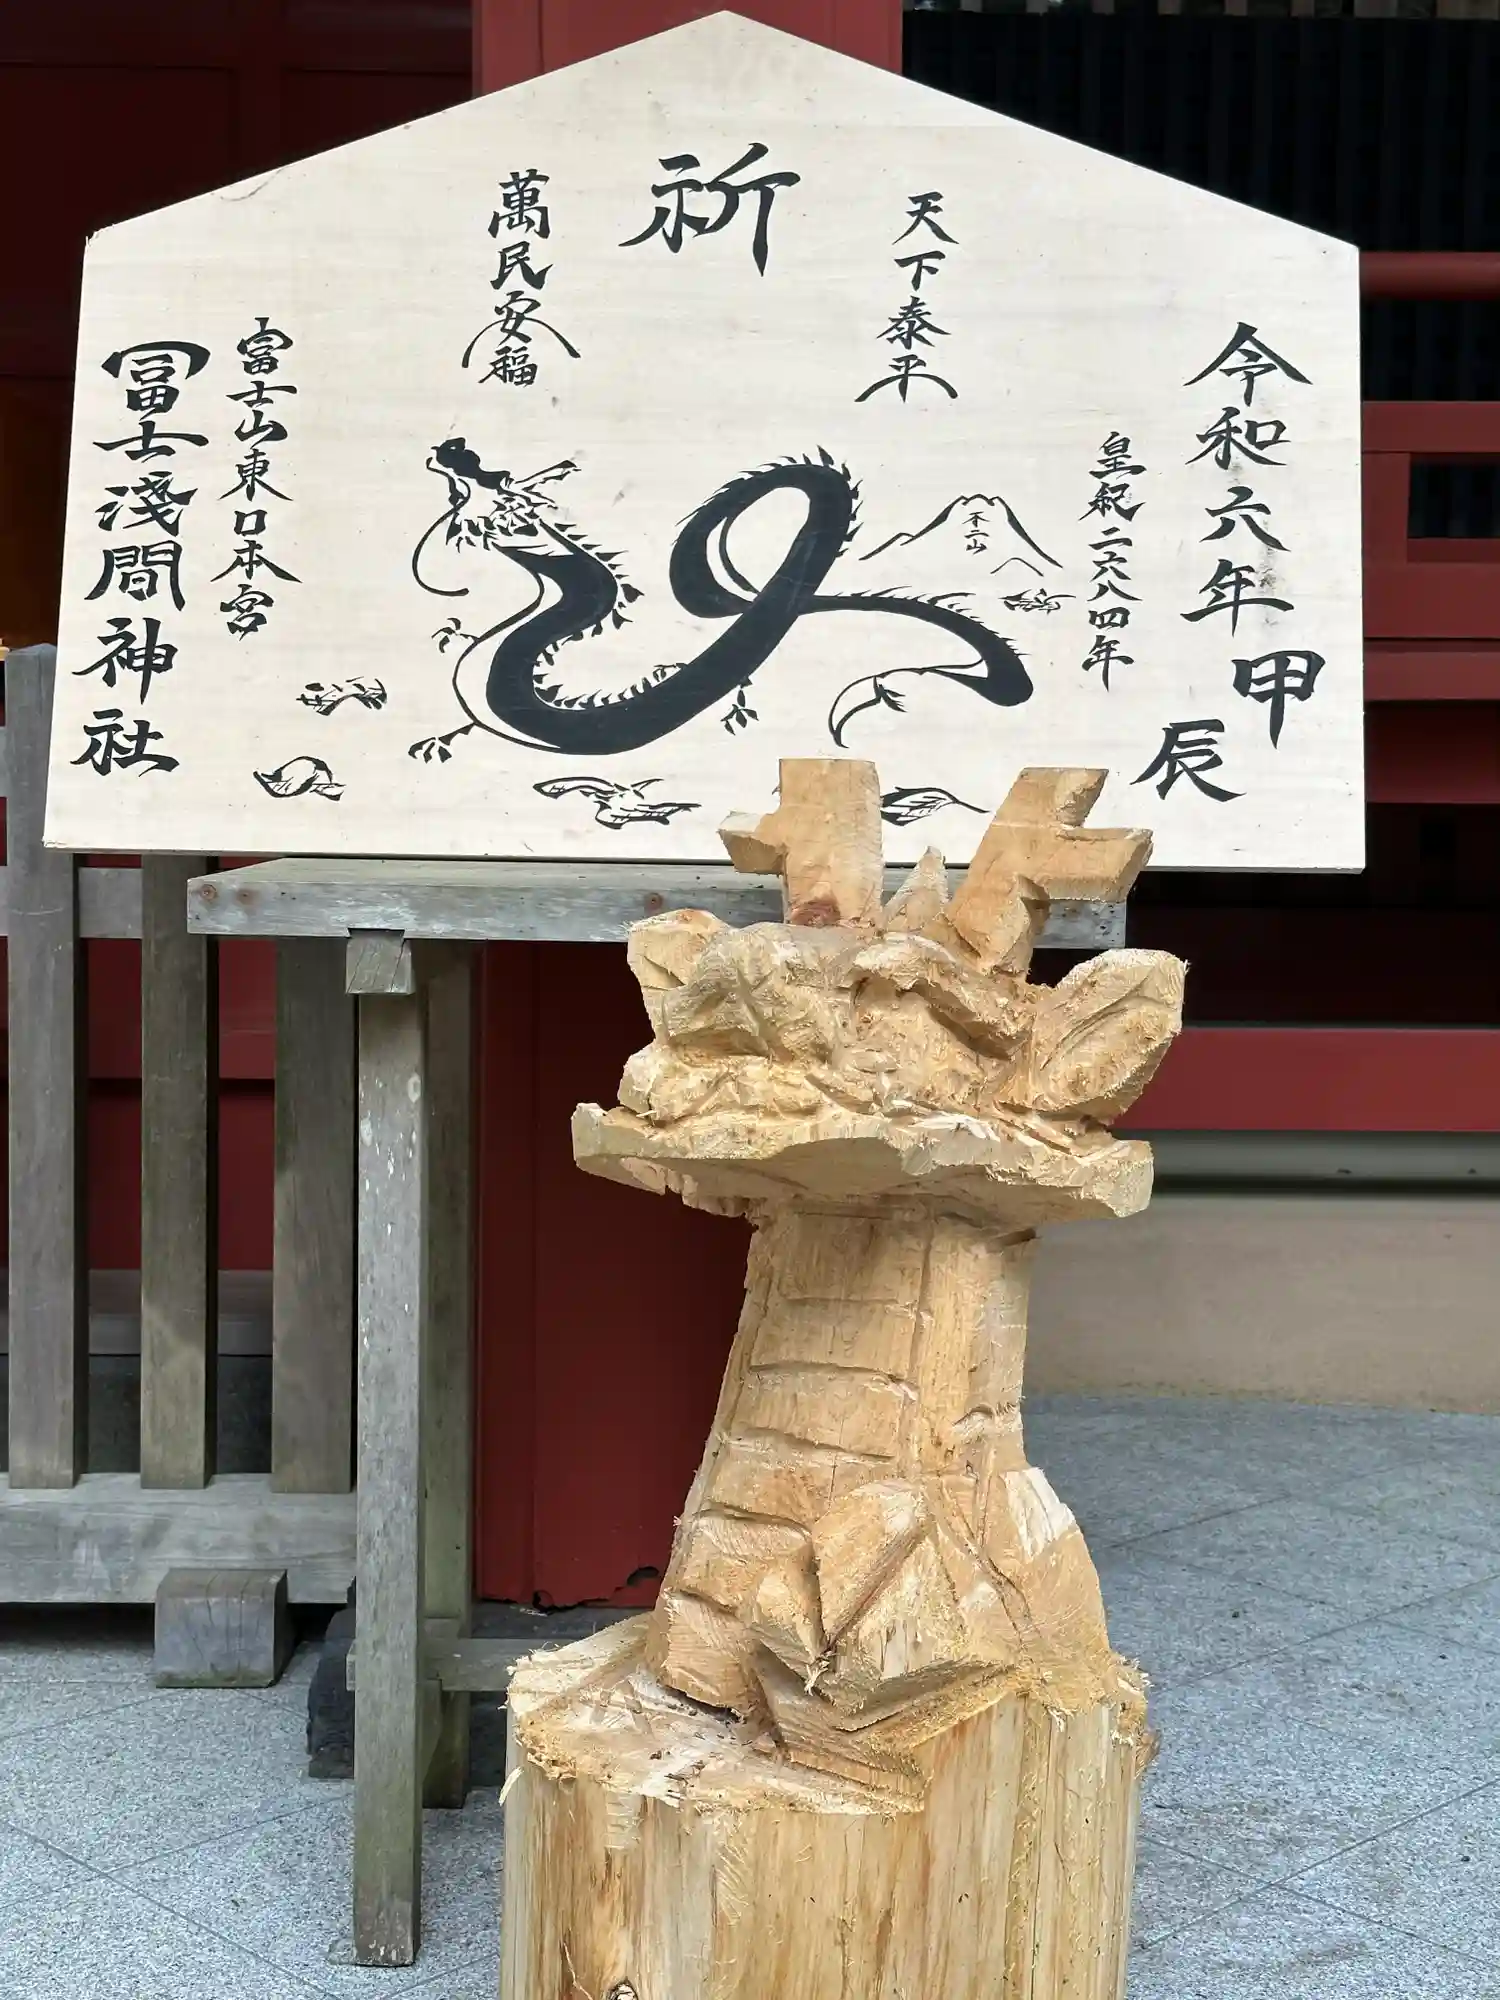 祈
令和六年甲辰
皇紀二六八四年
天下泰平
不二山
萬民安福
冨士山東口本宮
冨士淺間神社